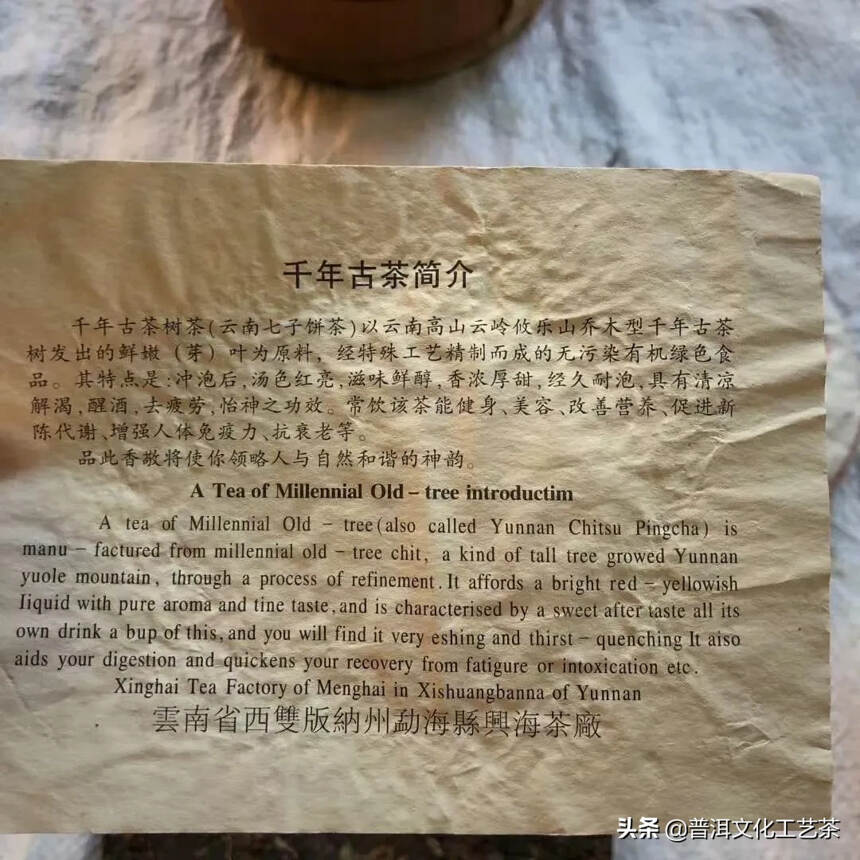 千年古茶简介
千年古茶树茶(云南七子饼茶)以云南高山云岭攸乐山乔木型千年古茶
树发出的鲜嫩（芽）叶为原料，经特殊工艺精制而成的无污染有机绿色食
品。其特点是:冲泡后,汤色红亮,滋味鲜醇,香浓厚甜,经久耐泡,具有清凉
解渴,醒酒,去疲劳,怡神之功效。常饮该茶能健身、美容、改善营养、促进新
陈代谢、增强人体免疫力、抗衰老等。
品此香散将使你领略人与自然和谐的神韵。
A Tea of Millennial Old – tree introductim
A tea of Millennial Old – tree(also called Yunnan Chitsu Pingcha) is
manu – factured from millennial old – tree chit, a kind of tall tree growed Yunnan
yuole mountain, through a process of refinement.It affords a bright red – yellowish
Iiquid with pure aroma and tine taste,and is characterised by a sweet after taste all its
own drink a bup of this,and you will find it very eshing and thirst – quenching It aiso
aids your digestion and quickens your recovery from fatigure or intoxication etc.
Xinghai Tea Factory of Menghai in Xishuangbanna of Yunnan
雲南省西雙版納州勐海縣興海茶廠
头条 @普洱文化工艺茶